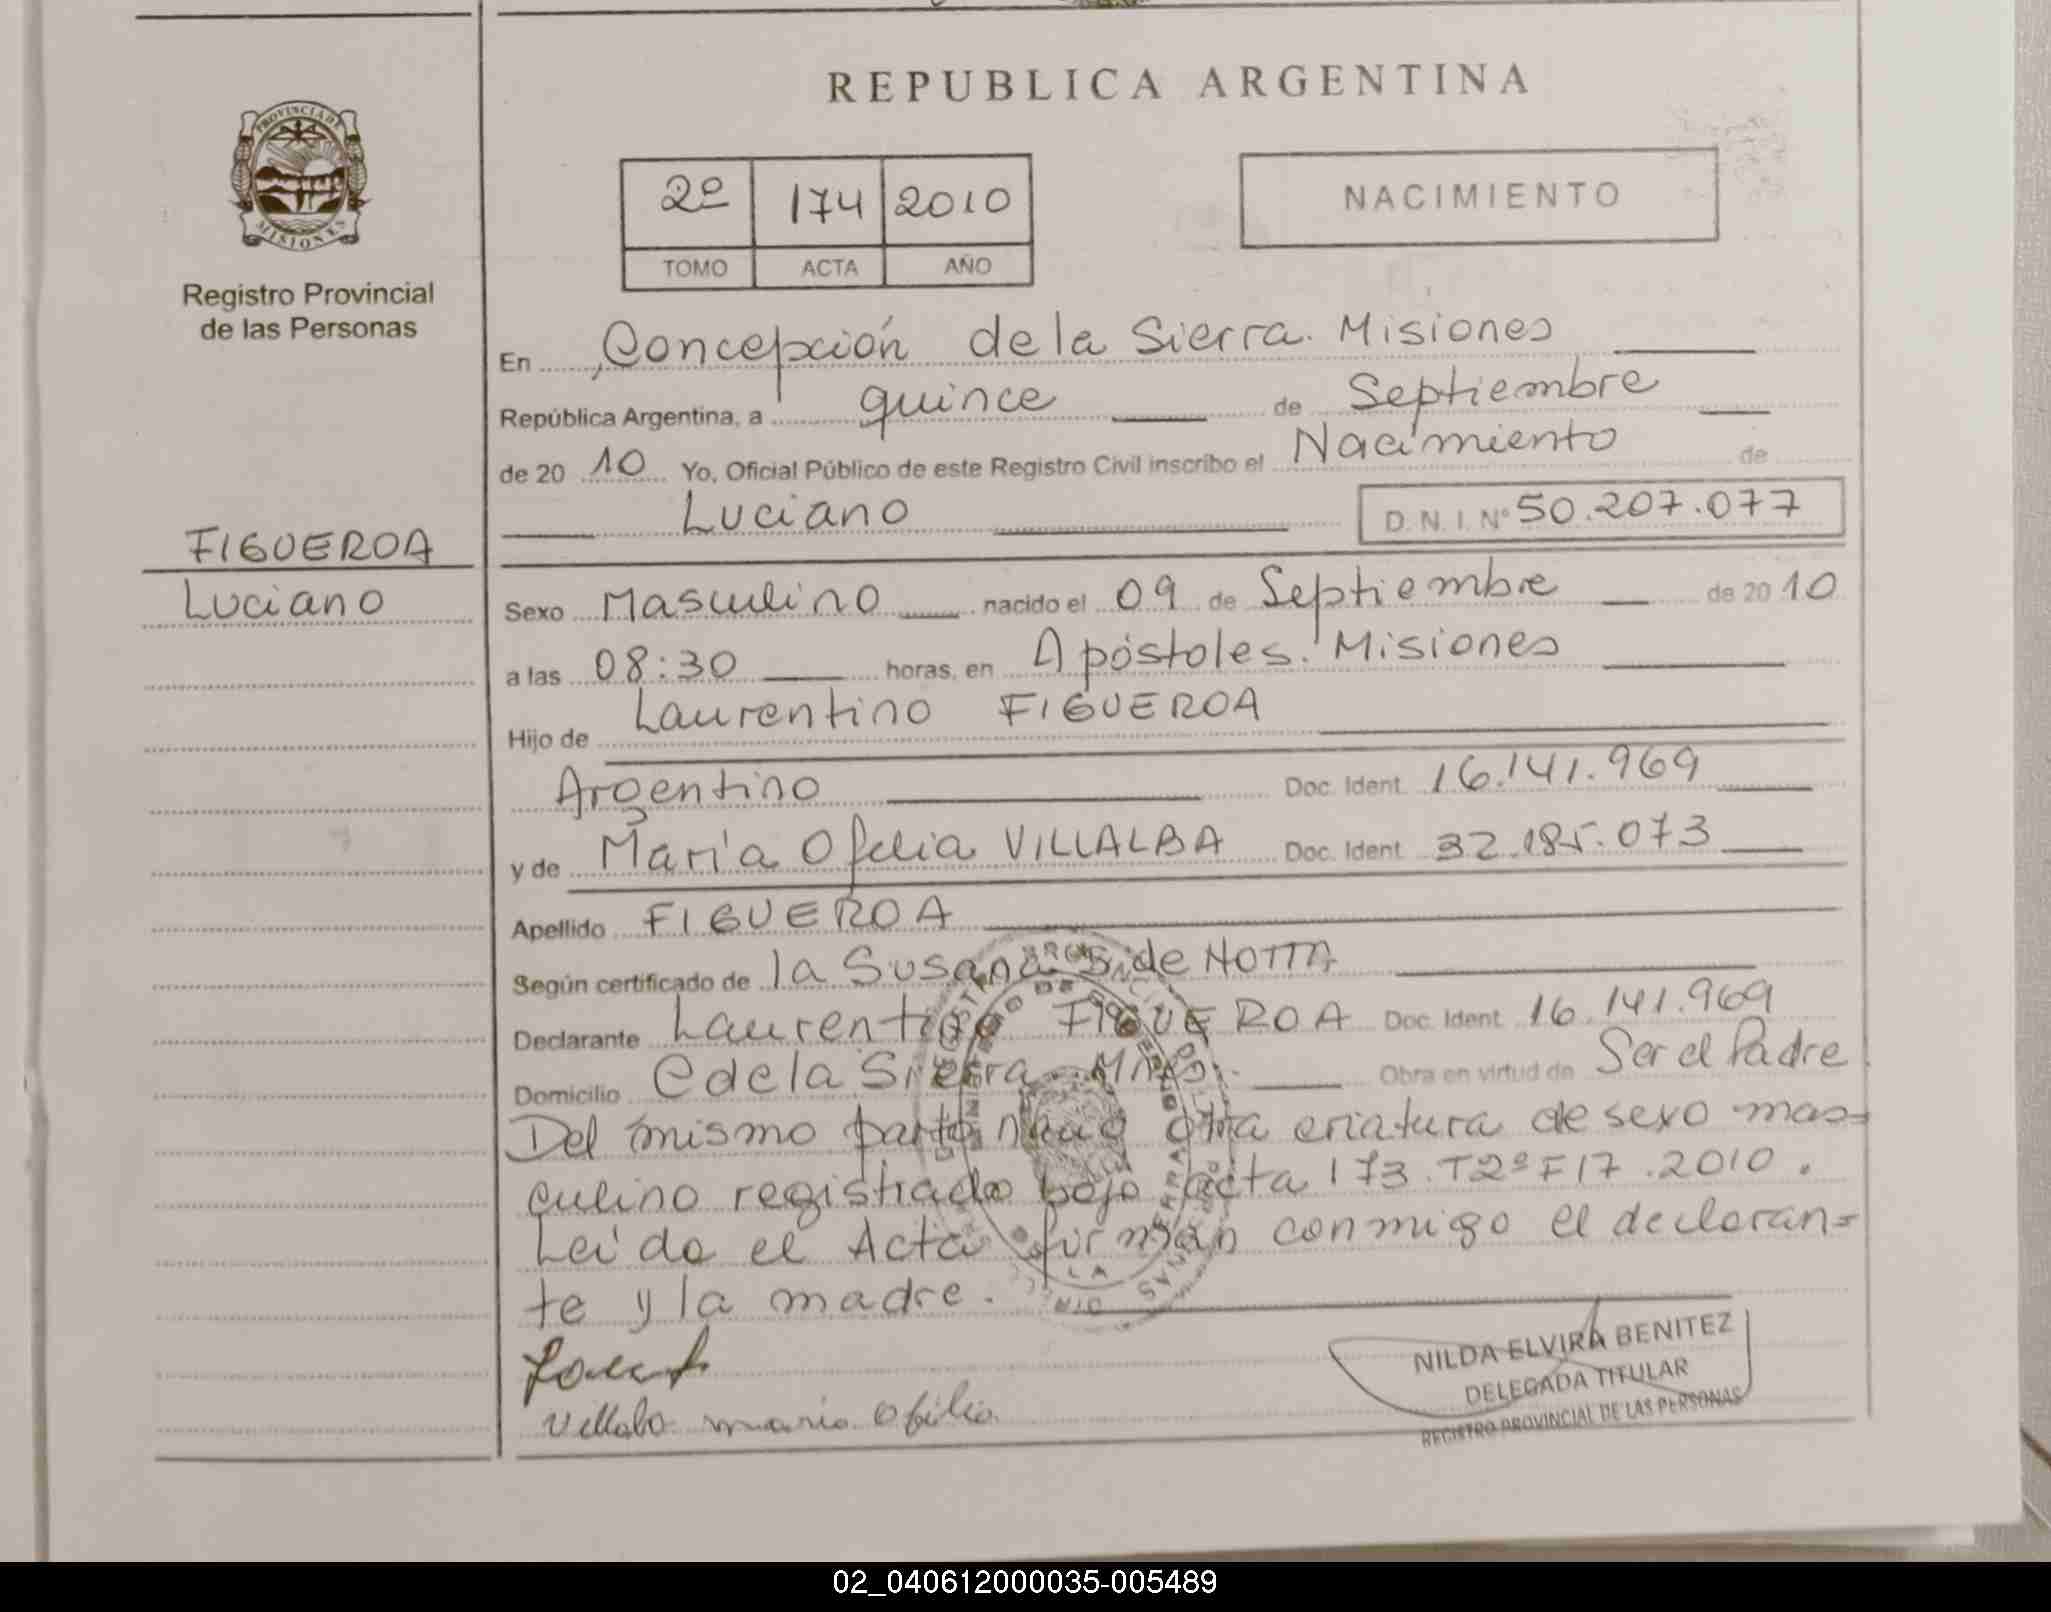 REPUBLICA ARGENTINA
PROVINCIA DE
MISIONES
Registro Provincial
de las Personas
2º 174 2010
TOMO ACTA AÑO
NACIMIENTO
En Concepción de la Sierra. Misiones
República Argentina, a quince de Septiembre
de 20 10 Yo, Oficial Público de este Registro Civil inscribo el Nacimiento de
Luciano D. N. I. Nº 50.207.077
FIGUEROA
Luciano
Sexo Masculino nacido el 09 de Septiembre de 20 10
a las 08:30 horas, en Apóstoles. Misiones
Hijo de Laurentino FIGUEROA
Argentino Doc. Ident. 16.141.969
y de María Ofelia VILLALBA Doc. Ident. 32.185.073
Apellido FIGUEROA
Según certificado de la Susana S. de
Declarante Laurentino FIGUEROA Doc. Ident. 16.141.969
Domicilio C de la Sierra. Mnes. Obra en virtud de Ser el Padre.
Del mismo parto nació otra criatura de sexo mas=
culino registrado bajo acta 173. T2º F17. 2010.
Leída el Acta firman conmigo el declaran=
te y la madre.
Villalba maria ofelia
NILDA ELVIRA BENITEZ
DELEGADA TITULAR
REGISTRO PROVINCIAL DE LAS PERSONAS
02_040612000035-005489